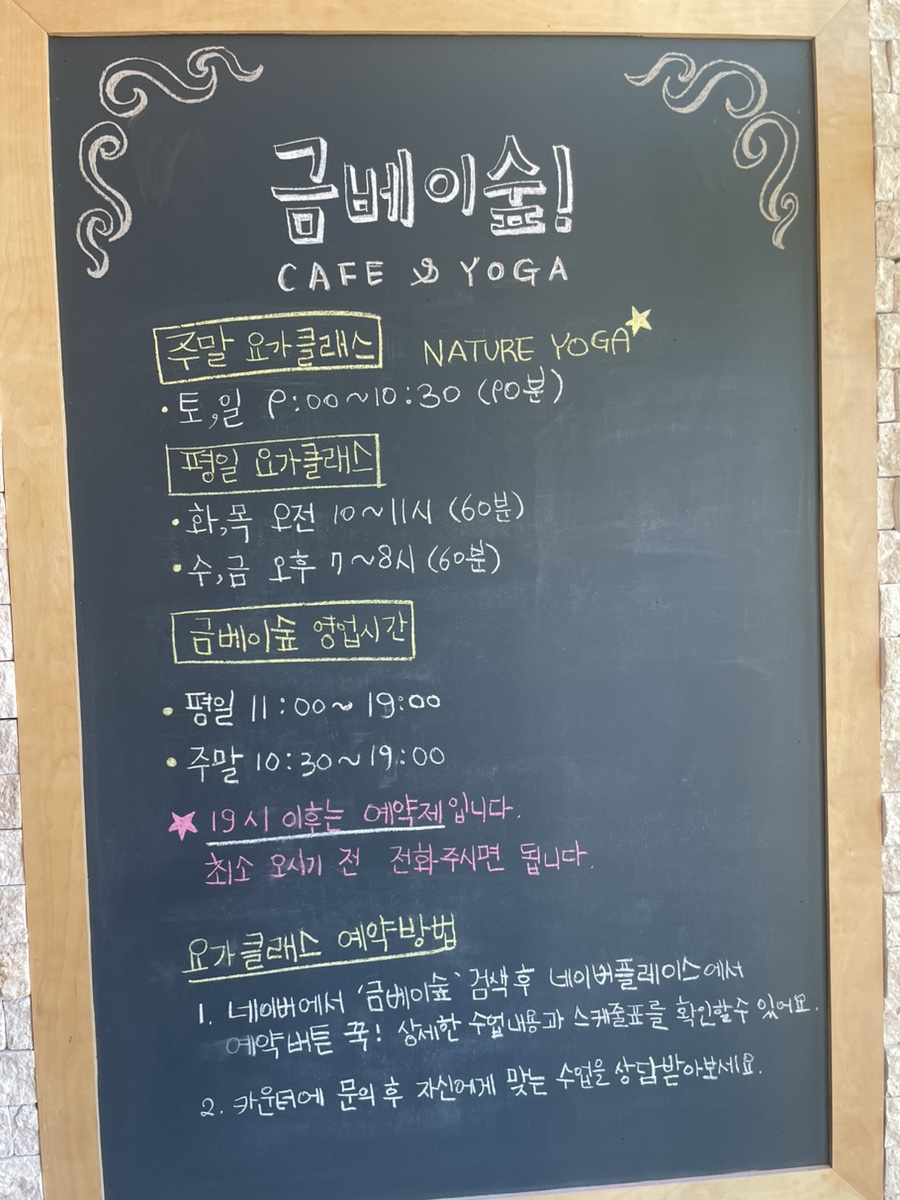 금베이숲!
CAFE & YOGA
주말 요가클래스 NATURE YOGA
• 토,일 9:00~10:30 (90분)
평일 요가클래스
• 화,목 오전 10~11시 (60분)
• 수,금 오후 7~8시 (60분)
금베이숲 영업시간
• 평일 11:00~19:00
• 주말 10:30~19:00
★ 19시 이후는 예약제입니다.
최소 오시기 전 전화주시면 됩니다.
요가클래스 예약방법
1. 네이버에서 '금베이숲' 검색 후 네이버플레이스에서
예약버튼 꾹! 상세한 수업내용과 스케줄표를 확인할수 있어요.
2. 카운터에 문의 후 자신에게 맞는 수업을 상담받아보세요.